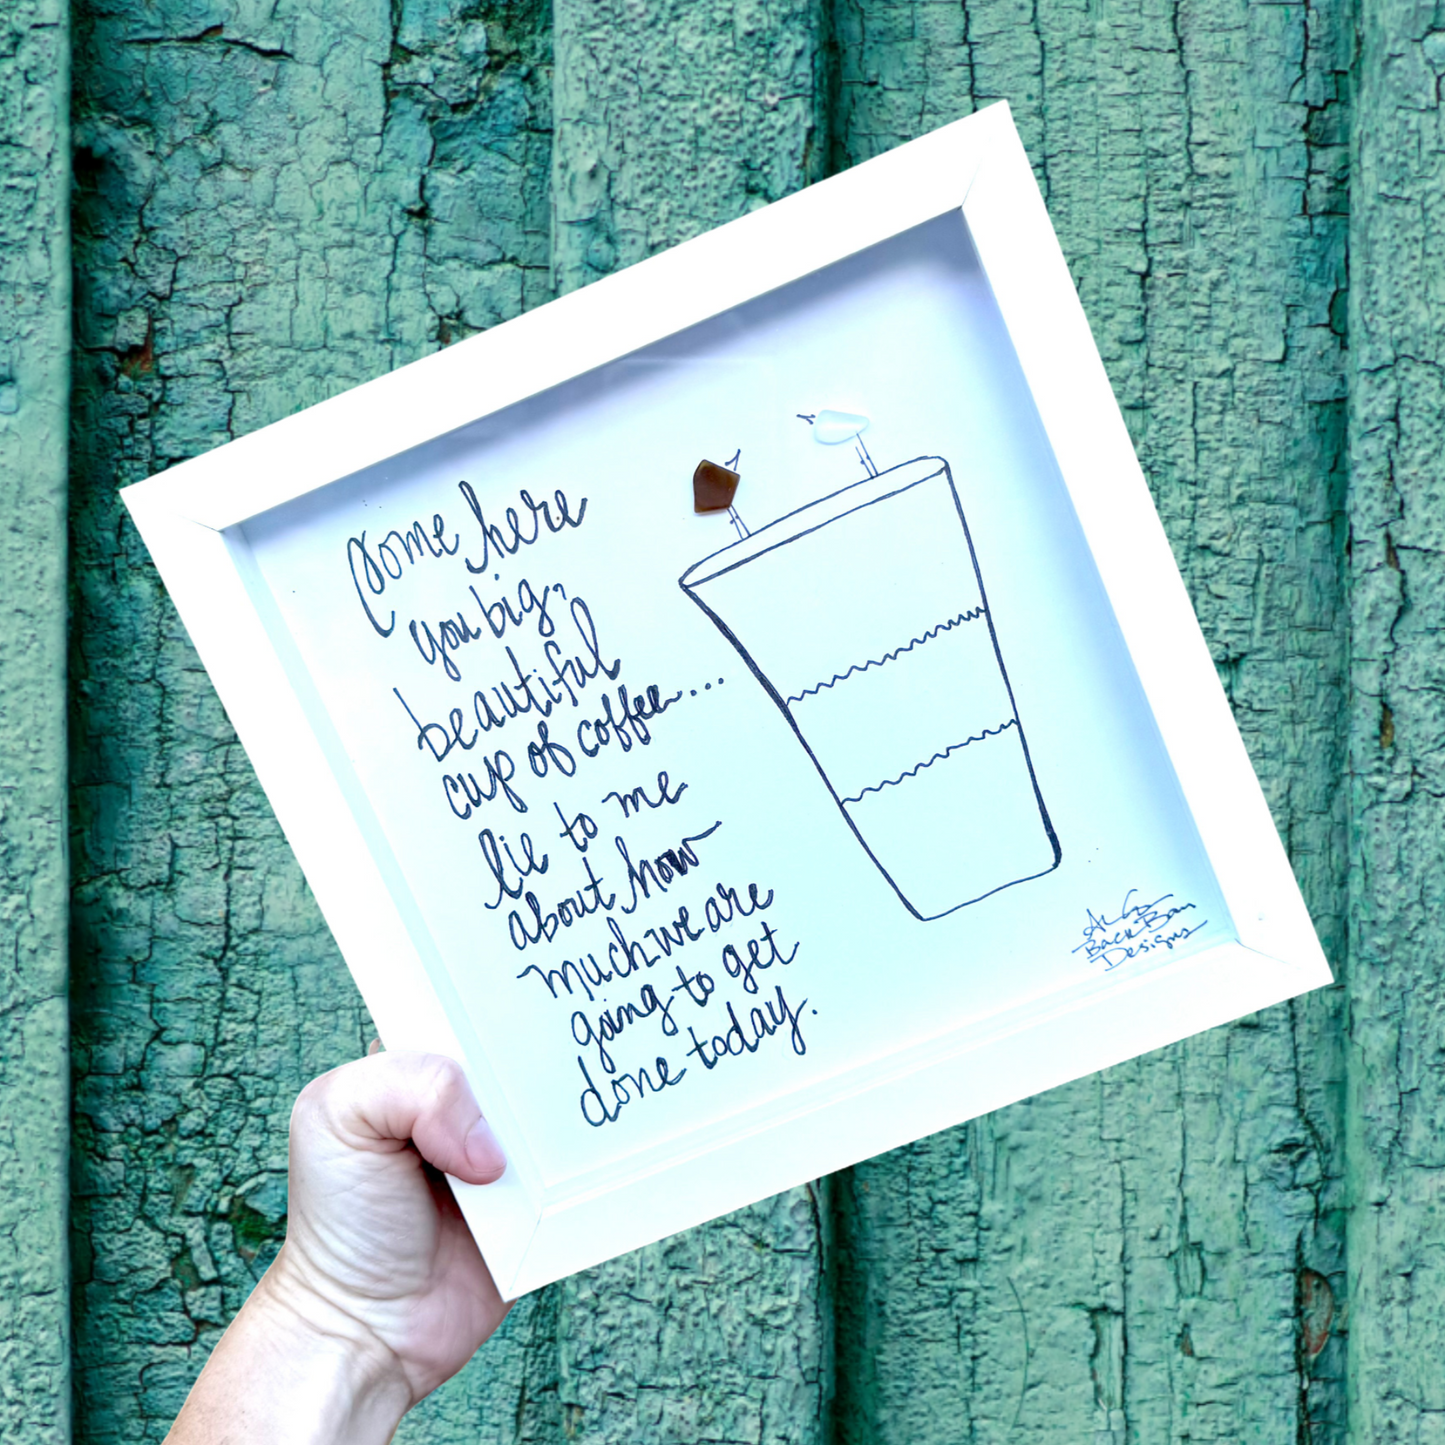 Come here
you big,
beautiful
cup of coffee...
lie to me
about how
much we are
going to get
done today.
BackBay
Designs